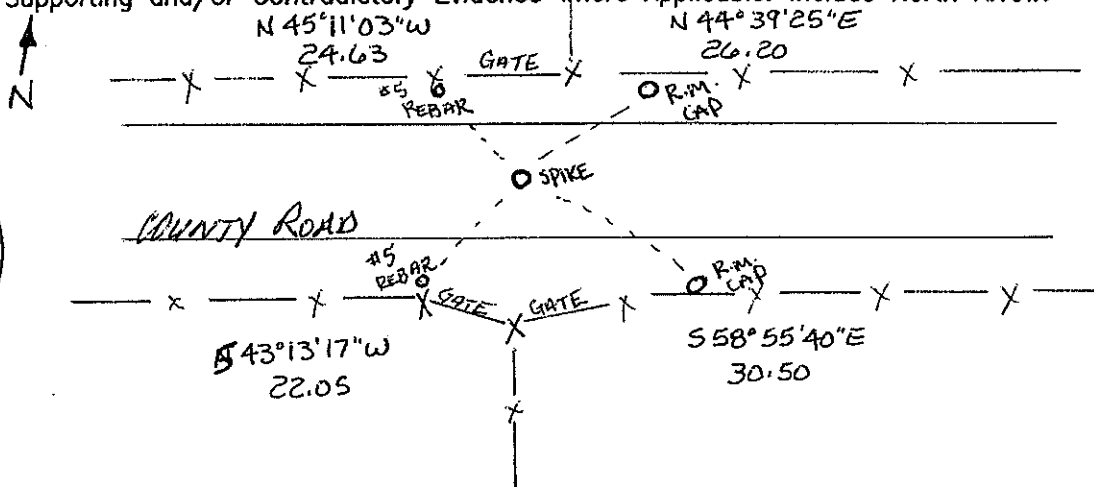 Supporting and/or Contradictory Evidence Where Applicable. Include North Arrow.
N 45°11'03"W
24.63
N 44°39'25"E
26.20
N
GATE
#5
REBAR
R.M.
CAP
SPIKE
COUNTY ROAD
#5
REBAR
R.M.
CAP
GATE
GATE
S 43°13'17"W
22.05
S 58°55'40"E
30.50